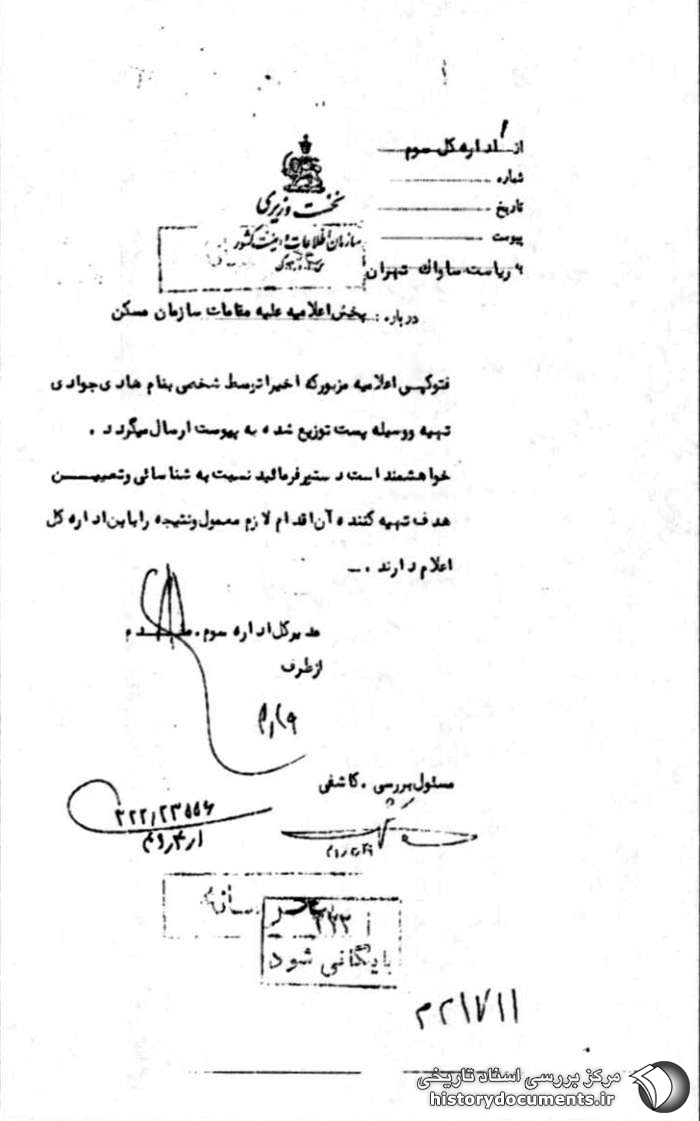 از اداره کل سوم
شماره
تاریخ
پیوست
نخست وزیری
سازمان اطلاعات و امنیت کشور
به ریاست ساواك تهران
درباره : پخش اعلامیه علیه مقامات سازمان مسکن
فتوکپی اعلامیه مزبور که اخیرا توسط شخصی بنام هادی جوادی
تهیه ووسیله پست توزیع شده به پیوست ارسال میگردد .
خواهشمند است دستور فرمائید نسبت به شناسائی وتعییــــن
هدف تهیه کننده آن اقدام لازم معمول ونتیجه را باین اداره کل
اعلام دارند . ــ
مدیرکل اداره سوم . مقــدم
از طرف
مسئول بررسی . کاشفی
۳۲۲٫۲۳۵۵۶
۳۲۲
بایگانی شود
۲۲۱۷۱۱ م
مرکز بررسی اسناد تاریخی
historydocuments.ir